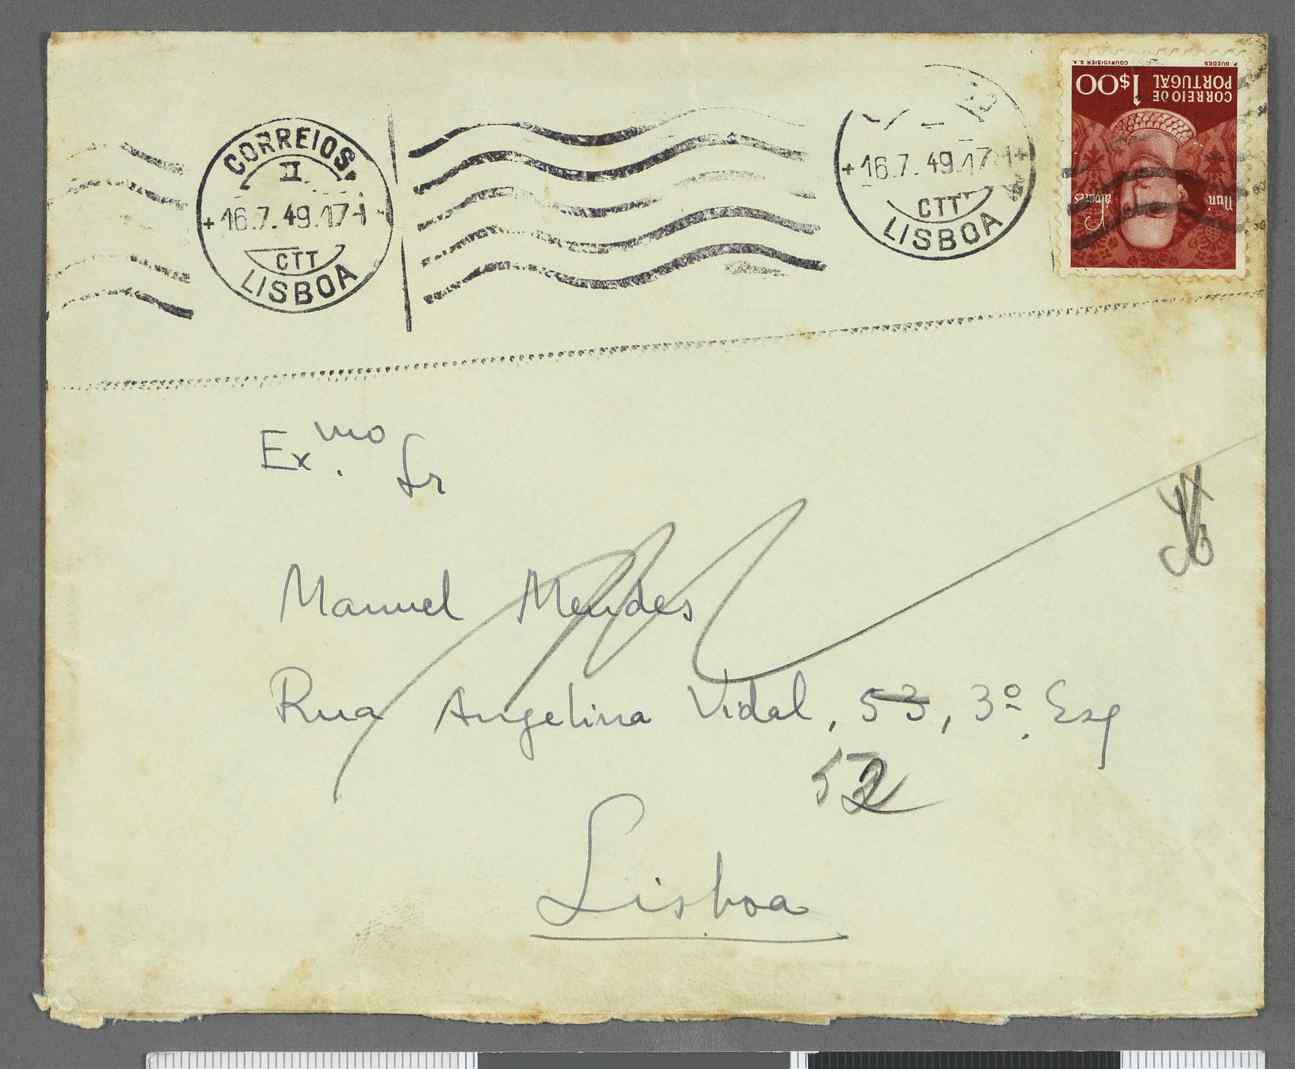 CORREIOS
II
+16.7.49.17-I+
CTT
LISBOA
+16.7.49.17-I+
CTT
LISBOA
CORREIO DE
PORTUGAL
1$00
Nun'
COURVOISIER S.A.
Ex.mo Sr
Manuel Mendes
Rua Angelina Vidal, 53, 3º. Esq
52
Lisboa